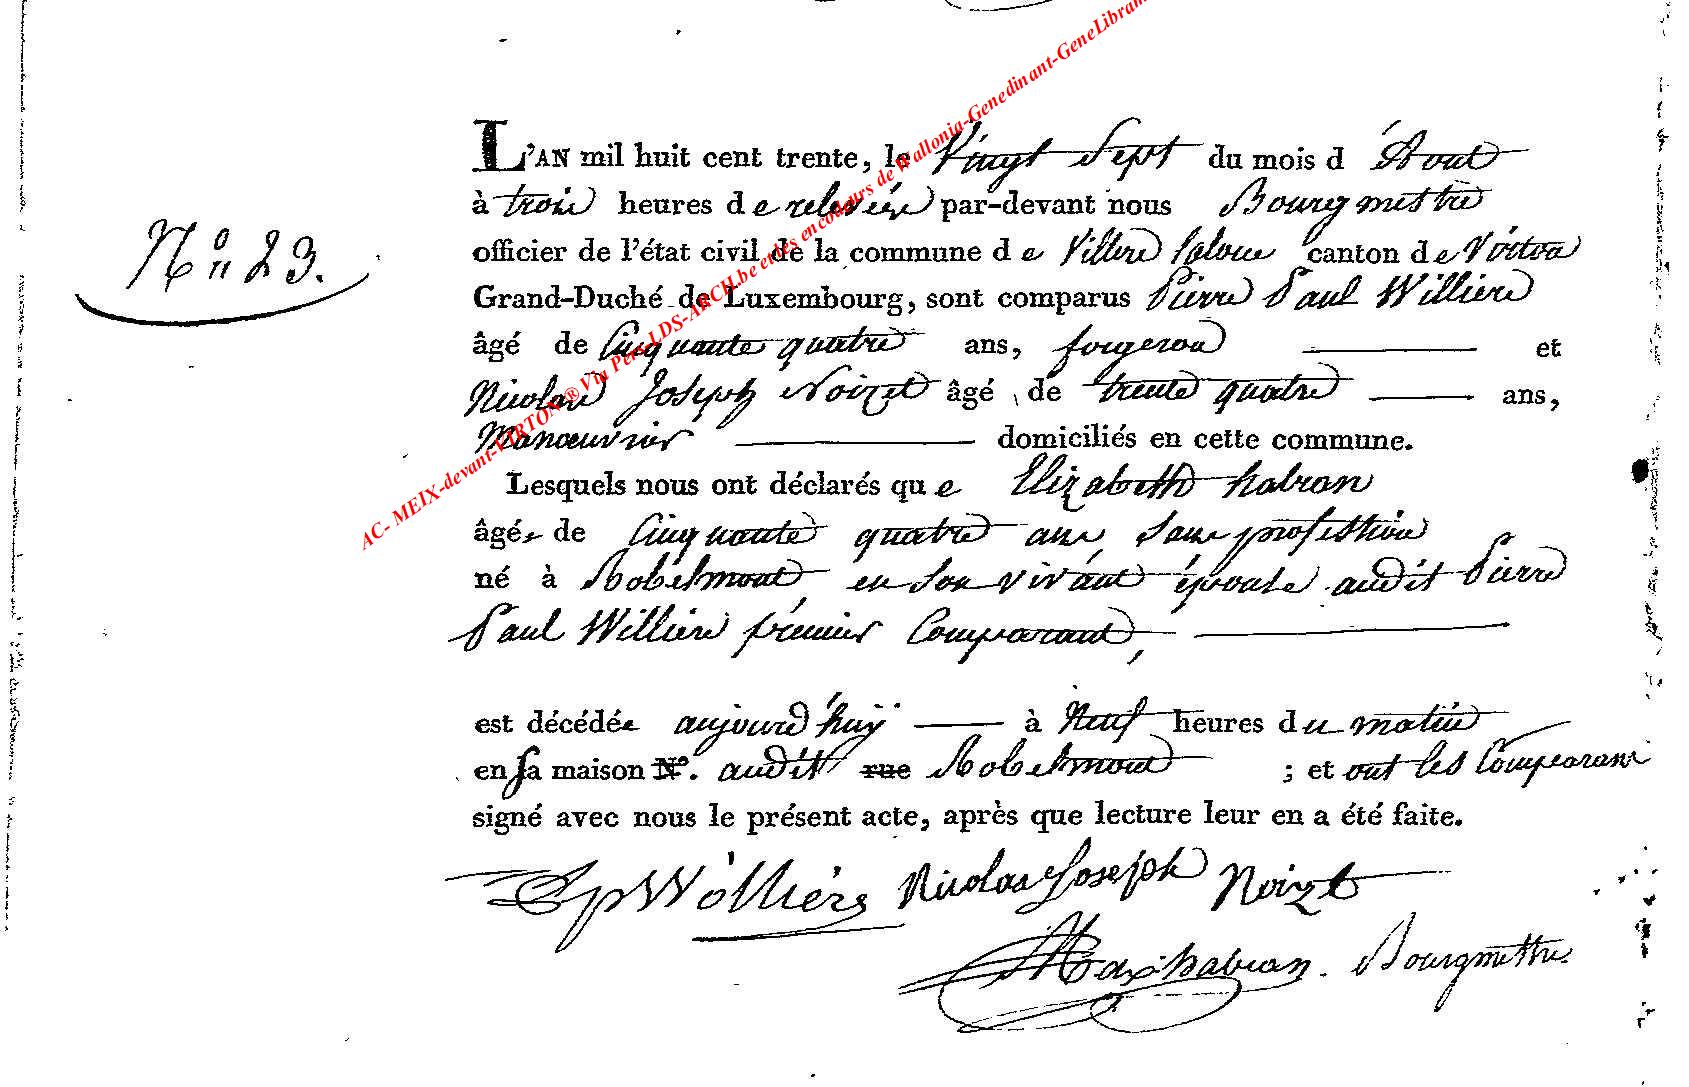 AC- MEIX-devant-VIRTON ® Via Pers-LDS-ARCH.be et des encodeurs de Wallonia-Genedinant-GeneLibram
L'AN mil huit cent trente, le Vingt Sept du mois d'Aout
à trois heures de relevée par-devant nous Bourgmettre
officier de l'état civil de la commune de Villers laloue canton de Virton
N° 23.
Grand-Duché de Luxembourg, sont comparus Pierre Paul Williere
âgé de Cinquante quatre ans, forgeron et
Nicolas Joseph Noizet âgé de trente quatre ans,
Manœuvrier domiciliés en cette commune.
Lesquels nous ont déclarés que Elizabeth habran
âgée de Cinquante quatre ans, Sans profession
né à Robelmont, en son vivant épouse audit Pierre
Paul Williere premier Comparant,
est décédée aujourd'huy à Neuf heures du matin
en sa maison N°. audit rue Robelmont ; et ont les Comparans
signé avec nous le présent acte, après que lecture leur en a été faite.
pp Williere Nicolas Joseph Noizet
habran. Bourgmettre.